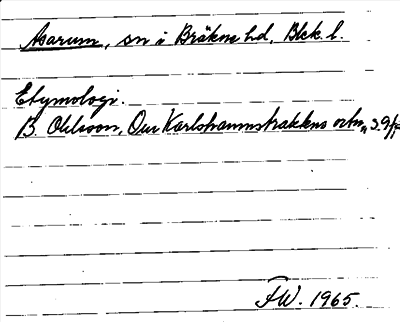 Asarum, sn i Bräkne hd, Blek. l.
Etymologi.
B. Ohlsson, Om Karlshamnstraktens ortn, s. 9
FW. 1965.